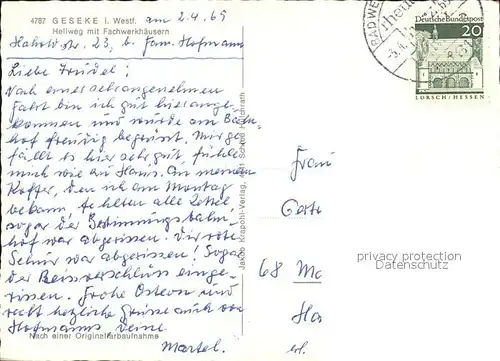 4787 GESEKE i. Westf. am 2.4.69
Hellweg mit Fachwerkhäusern
Hahnstr. 23, b. Fam. Hofmann
Liebe Freundel!
Nach einer sehr angenehmen
Fahrt bin ich gut hier ange-
kommen und wurde am Bahn-
hof freudig begrüsst. Mir ge-
fällt es hier sehr gut, fühle
mich wie zu Haus. An meinem
Koffer, den ich am Montag
bekam fehlten alle Zettel,
sogar der Bestimmungsbahn-
hof war abgerissen. Die rote
Schnur war abgerissen! Sogar
der Reisverschluss einge-
rissen. Frohe Ostern und
recht herzliche Grüsse auch von
Hofmanns Deine
Martel.
Nach einer Originalfarbaufnahme
Jakob Krapohl-Verlag, Schloß
BAD WE
Deutsche Bundespost
20
LORSCH/HESSEN
Frau
68
privacy protection
Datenschutz